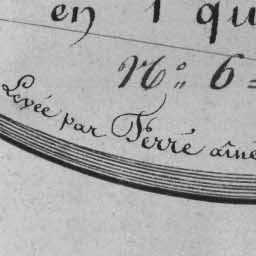 en 1 qu
N.º 6=
Levée par Ferré aîné